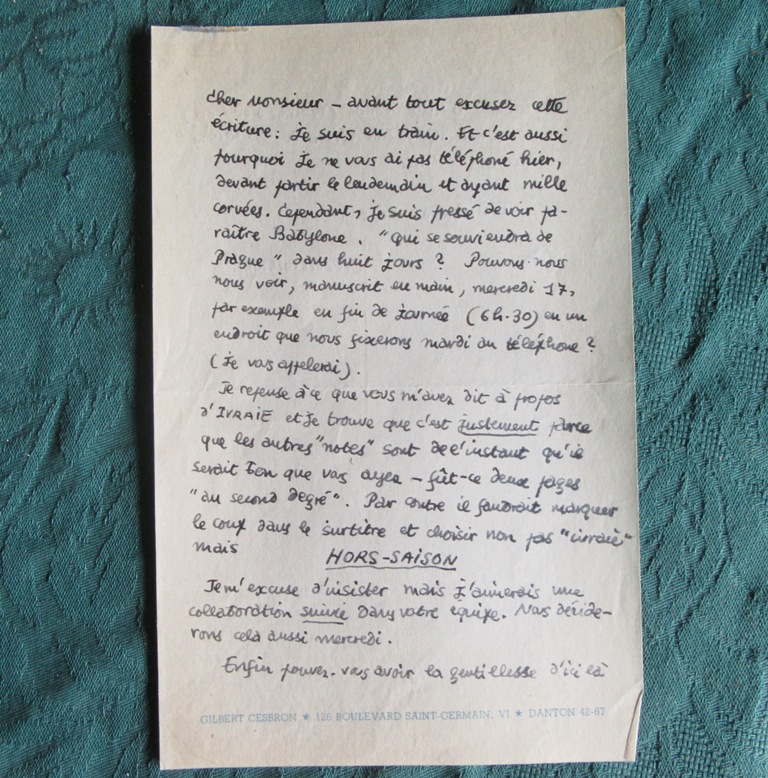 cher Monsieur – avant tout excusez cette
écriture : je suis en train. Et c'est aussi
pourquoi je ne vous ai pas téléphoné hier,
devant partir le lendemain et ayant mille
corvées. Cependant, je suis pressé de voir pa-
raître Babylone. "Qui se souviendra de
Prague" dans huit jours ? Pouvons-nous
nous voir, manuscrit en main, mercredi 17,
par exemple en fin de journée (6h.30) en un
endroit que nous fixerons mardi au téléphone ?
(Je vous appellerai).
Je repense à ce que vous m'avez dit à propos
d'IVRAIE et je trouve que c'est justement parce
que les autres "notes" sont de l'instant qu'il
serait bon que vous ayez – fût-ce deux pages
"au second degré". Par contre il faudrait marquer
le coup dans le surtitre et choisir non pas "ivraie"
mais HORS-SAISON
Je m'excuse d'insister mais j'aimerais une
collaboration suivie dans votre équipe. Nous décide-
rons cela aussi mercredi.
Enfin pouvez-vous avoir la gentillesse d'ici là
GILBERT CESBRON ★ 126 BOULEVARD SAINT-GERMAIN, VI ★ DANTON 42-67